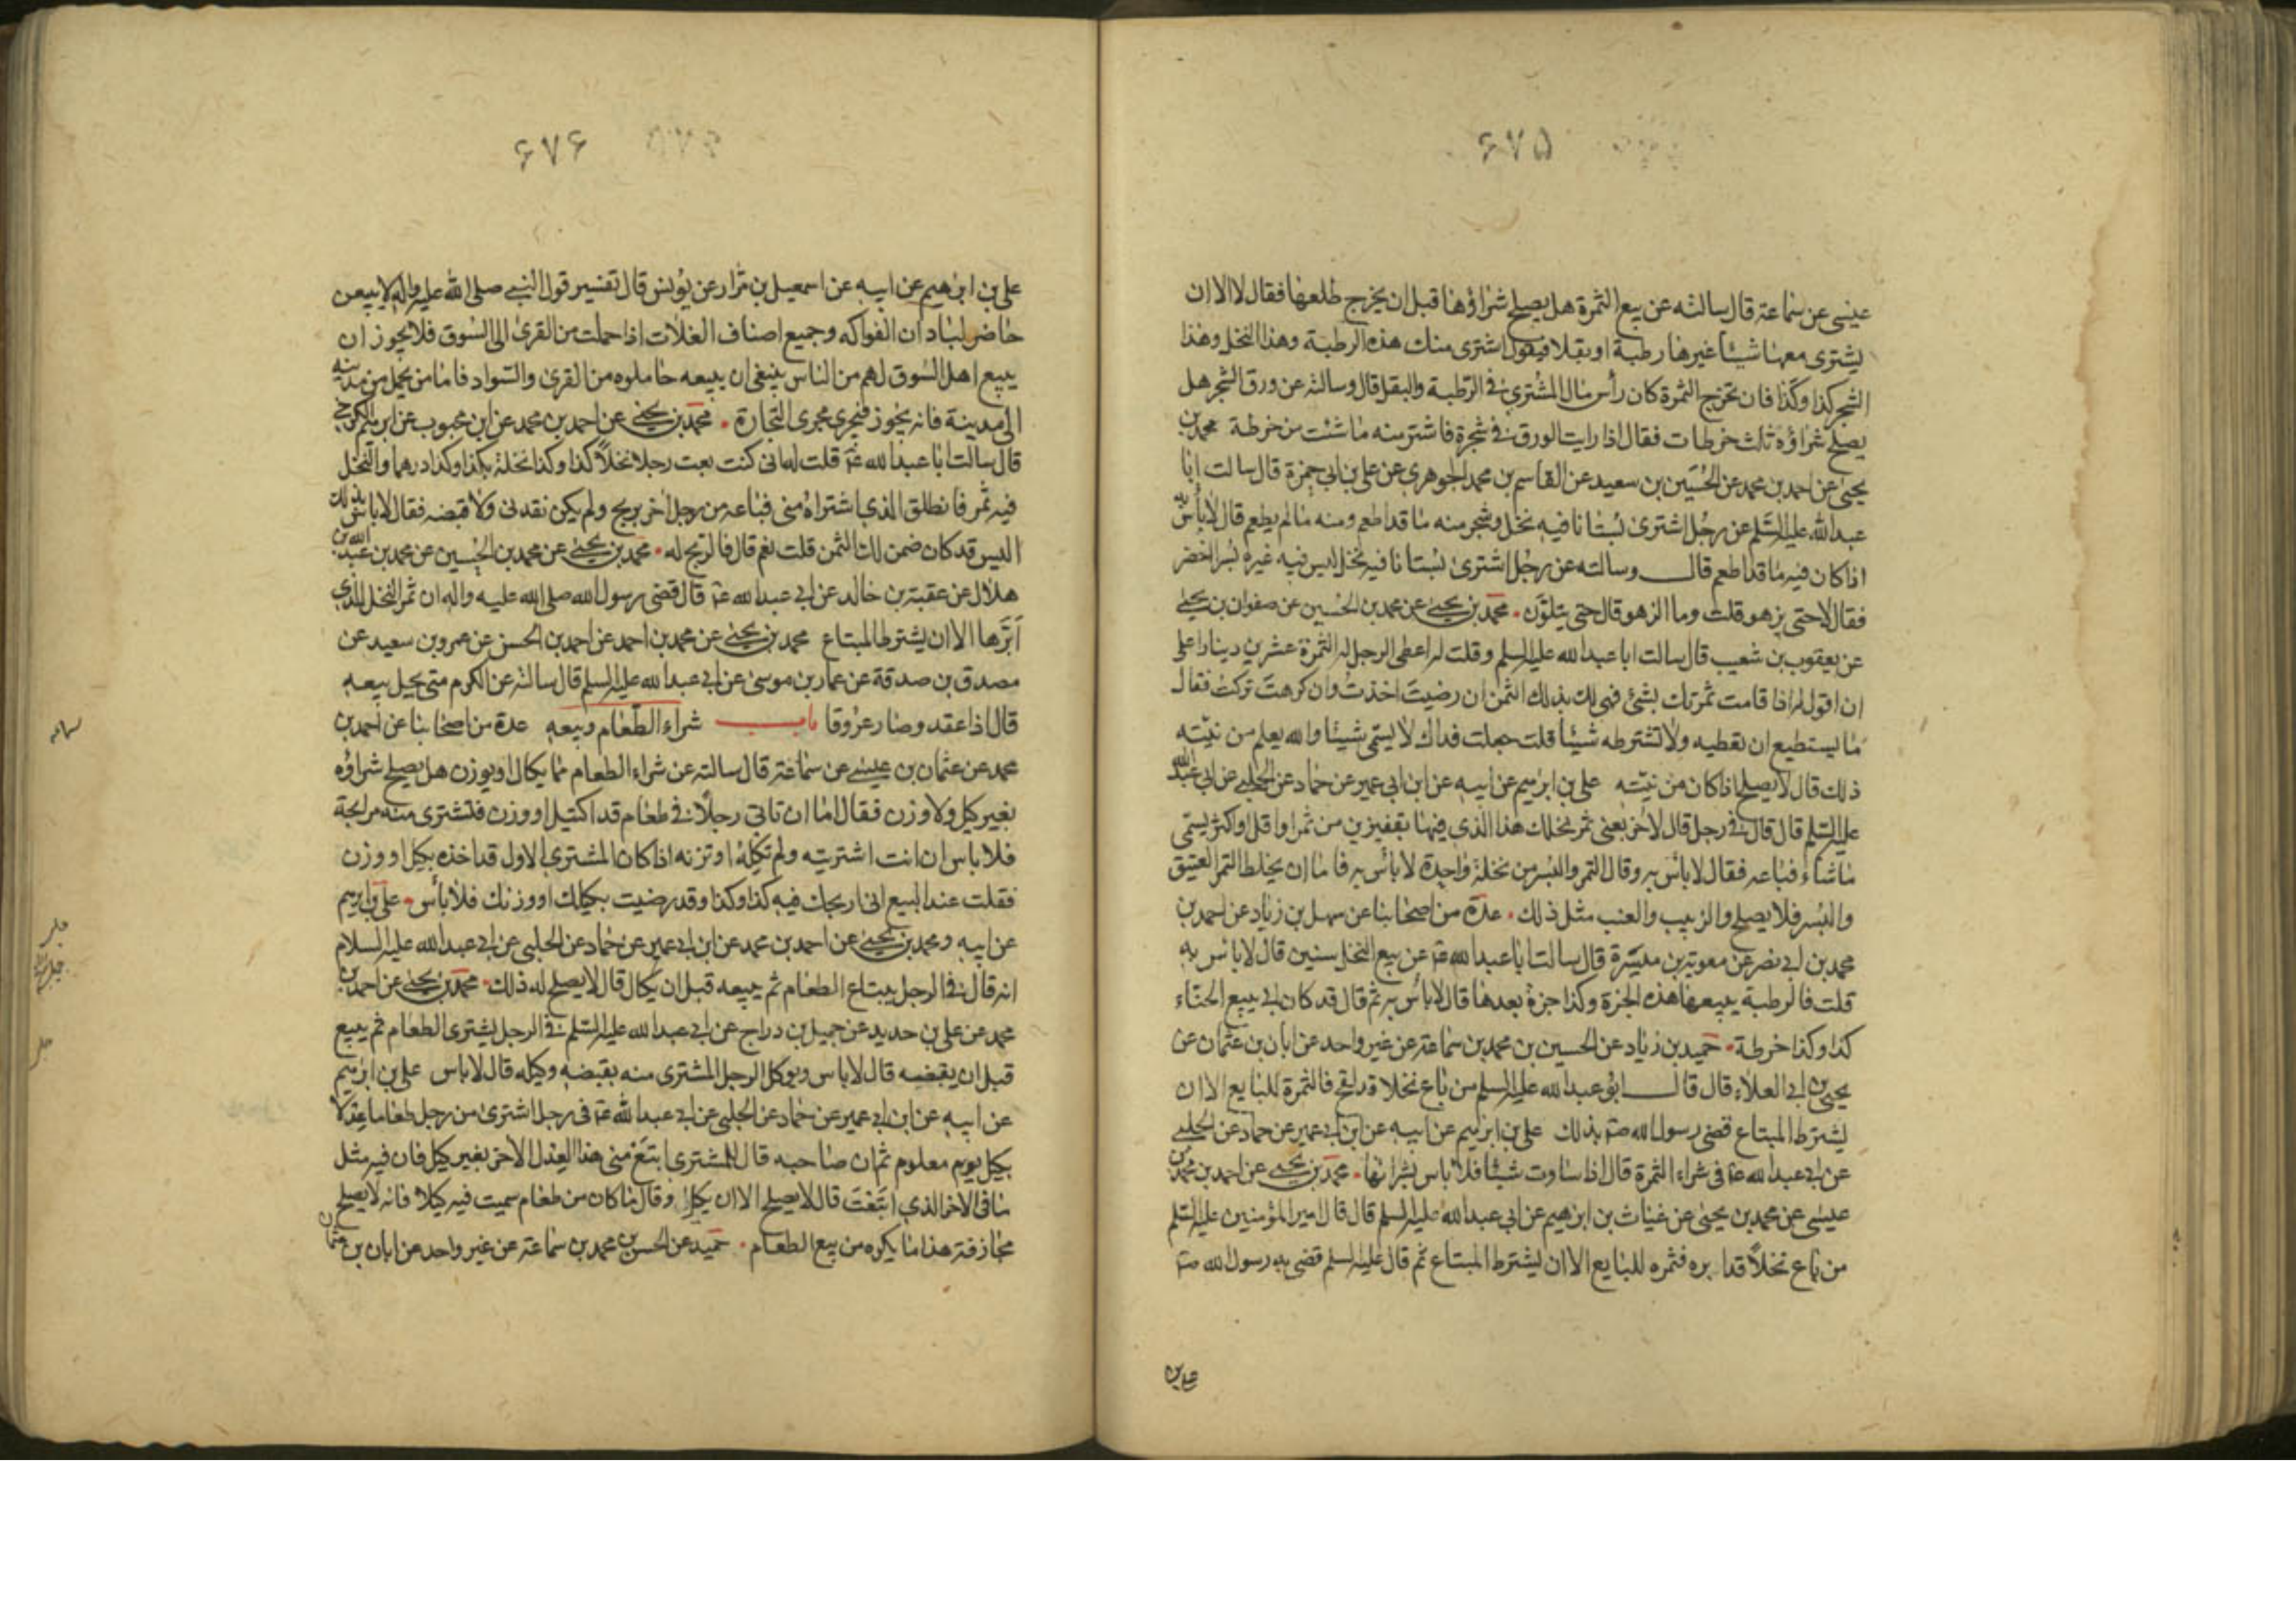 ۶۷۵
عيسى عن سماعة قال سالته عن بيع الثمرة هل يصلح شراؤها قبل ان يخرج طلعها فقال لا الا ان
يشترى معها شيئا غيرها رطبة او بقلا فيقول اشترى منك هذه الرطبة وهذا النخل وهذا
الشجر كذا وكذا فان تخرج الثمرة كان رأس مال المشترى فى الرطبة والبقل قال وسالته عن ورق الشجر هل
يصلح شراؤه ثلث خرطات فقال اذا رايت الورق فى شجرة فاشتر منه ما شئت من خرطة محمد بن
يحيى عن احمد بن محمد عن الحسين بن سعيد عن القاسم بن محمد الجوهرى عن على بن ابى حمزة قال سالت ابا
عبد الله عليه السلم عن رجل اشترى بستانا فيه نخل وشجر منه ما قد اطعم ومنه ما لم يطعم قال لا بأس به
اذا كان فيه ما قد اطعم قال وسالته عن رجل اشترى بستانا فيه نخل ليس فيه غيره بسر اخضر
فقال لا حتى يزهو قلت وما الزهو قال حتى يتلون محمد بن يحيى عن محمد بن الحسين عن صفوان بن يحيى
عن يعقوب بن شعيب قال سالت ابا عبد الله عليه السلم وقلت له اعطى الرجل له الثمرة عشرين دينارا على
ان اقول له اذا قامت ثمرتك بشئ فهى لك بذلك الثمن ان رضيت اخذت وان كرهت تركت فقال
ما يستطيع ان يعطيه ولا تشترطه شيئا قلت جعلت فداك لا يسمى شيئا والله يعلم من نيته
ذلك قال لا يصلح اذا كان من نيته على بن ابرهيم عن ابيه عن ابن ابى عمير عن حماد عن الحلبى عن ابى عبد الله
عليه السلم قال قال فى رجل قال لاخر بعنى ثمر نخلك هذا الذى فيها بقفيزين من ثمر او اقل او اكثر يسمى
ما شاء فباعه فقال لا بأس به وقال التمر والبسر من نخلة واحدة لا بأس به فاما ان يخلط التمر العتيق
والبسر فلا يصلح والزبيب والعنب مثل ذلك عدة من اصحابنا عن سهل بن زياد عن احمد بن
محمد بن ابى نصر عن معوية بن ميسرة قال سالت ابا عبد الله ع عن بيع النخل سنين قال لا باس به
قلت فالرطبة يبيعها هذه الجزة وكذا جزة بعدها قال لا بأس به ثم قال قد كان ابى يبيع الحناء
كذا وكذا خرطة حميد بن زياد عن الحسين بن محمد بن سماعة عن غير واحد عن ابان بن عثمان عن
يحيى بن ابى العلاء قال قال ابو عبد الله عليه السلم من باع نخلا قد لقح فالثمرة للبايع الا ان
يشترط المبتاع قضى رسول الله ص بذلك على بن ابرهيم عن ابيه عن ابن ابى عمير عن حماد عن الحلبى
عن ابى عبد الله ع فى شراء الثمرة قال اذا ساوت شيئا فلا باس بشرائها محمد بن يحيى عن احمد بن محمد بن
عيسى عن محمد بن يحيى عن غياث بن ابرهيم عن ابى عبد الله عليه السلم قال قال امير المؤمنين عليه السلم
من باع نخلا قد ابره فثمره للبايع الا ان يشترط المبتاع ثم قال عليه السلم قضى به رسول الله ص
على بن
۶۷۶
على بن ابرهيم عن ابيه عن اسمعيل بن مرار عن يونس قال تفسير قول النبى صلى الله عليه واله لا يبيعن
حاضر لباد ان الفواكه وجميع اصناف الغلات اذا حملت من القرى الى السوق فلا يجوز ان
يبيع اهل السوق لهم من الناس ينبغى ان يبيعه حاملوه من القرى والسواد فاما من يحمل من مدينة
الى مدينة فانه يجوز فيجرى مجرى التجارة محمد بن يحيى عن احمد بن محمد عن ابن محبوب عن ابرهيم الكرخى
قال سالت ابا عبد الله ع قلت له انى كنت بعت رجلا نخلا كذا وكذا نخلة بكذا وكذا درهما والنخل
فيه ثمر فانطلق الذى اشتراه منى فباعه من رجل اخر بربح ولم يكن نقدنى ولا قبضه فقال لا باس بذلك
اليس قد كان ضمن لك الثمن قلت نعم قال فالربح له محمد بن يحيى عن محمد بن الحسين عن محمد بن عبد الله بن
هلال عن عقبة بن خالد عن ابى عبد الله ع قال قضى رسول الله صلى الله عليه واله ان ثمر النخل للذى
ابرها الا ان يشترط المبتاع محمد بن يحيى عن محمد بن احمد عن احمد بن الحسن عن عمرو بن سعيد عن
مصدق بن صدقة عن عمار بن موسى عن ابى عبد الله عليه السلم قال سالته عن الكرم متى يحل بيعه
قال اذا عقد وصار عروقا باب شراء الطعام وبيعه عدة من اصحابنا عن احمد بن
محمد عن عثمان بن عيسى عن سماعة قال سالته عن شراء الطعام مما يكال او يوزن هل يصلح شراؤه
بغير كيل ولا وزن فقال اما ان تاتى رجلا فى طعام قد اكتيل او وزن فتشترى منه مرابحة
فلا باس ان انت اشتريته ولم تكله او تزنه اذا كان المشترى الاول قد اخذه بكيل او وزن
فقلت عند البيع انى اربحك فيه كذا وكذا وقد رضيت بكيلك او وزنك فلا بأس على بن ابرهيم
عن ابيه ومحمد بن يحيى عن احمد بن محمد عن ابن ابى عمير عن حماد عن الحلبى عن ابى عبد الله عليه السلام
انه قال فى الرجل يبتاع الطعام ثم يبيعه قبل ان يكال قال لا يصلح له ذلك محمد بن يحيى عن احمد بن
محمد عن على بن حديد عن جميل بن دراج عن ابى عبد الله عليه السلم فى الرجل يشترى الطعام ثم يبيع
قبل ان يقبضه قال لا باس ويوكل الرجل المشترى منه بقبضه وكيله قال لا باس على بن ابرهيم
عن ابيه عن ابن ابى عمير عن حماد عن الحلبى عن ابى عبد الله ع فى رجل اشترى من رجل طعاما عدلا
بكيل يوم معلوم ثم ان صاحبه قال للمشترى ابتع منى هذا العدل الاخر بغير كيل فان فيه مثل
ما فى الاخر الذى ابتعت قال لا يصلح الا ان يكيل وقال ما كان من طعام سميت فيه كيلا فانه لا يصلح
مجازفة هذا ما يكره من بيع الطعام حميد عن الحسن بن محمد بن سماعة عن غير واحد عن ابان بن عثمان